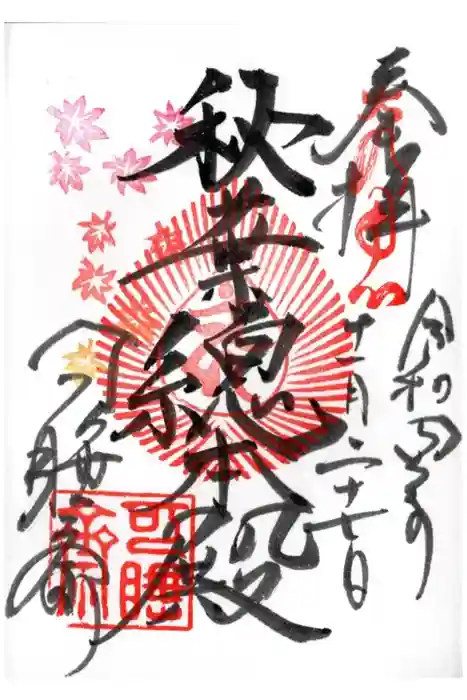 奉拝
令和四年
十一月二十七日
秋葉總本殿
可睡齋
可睡齋